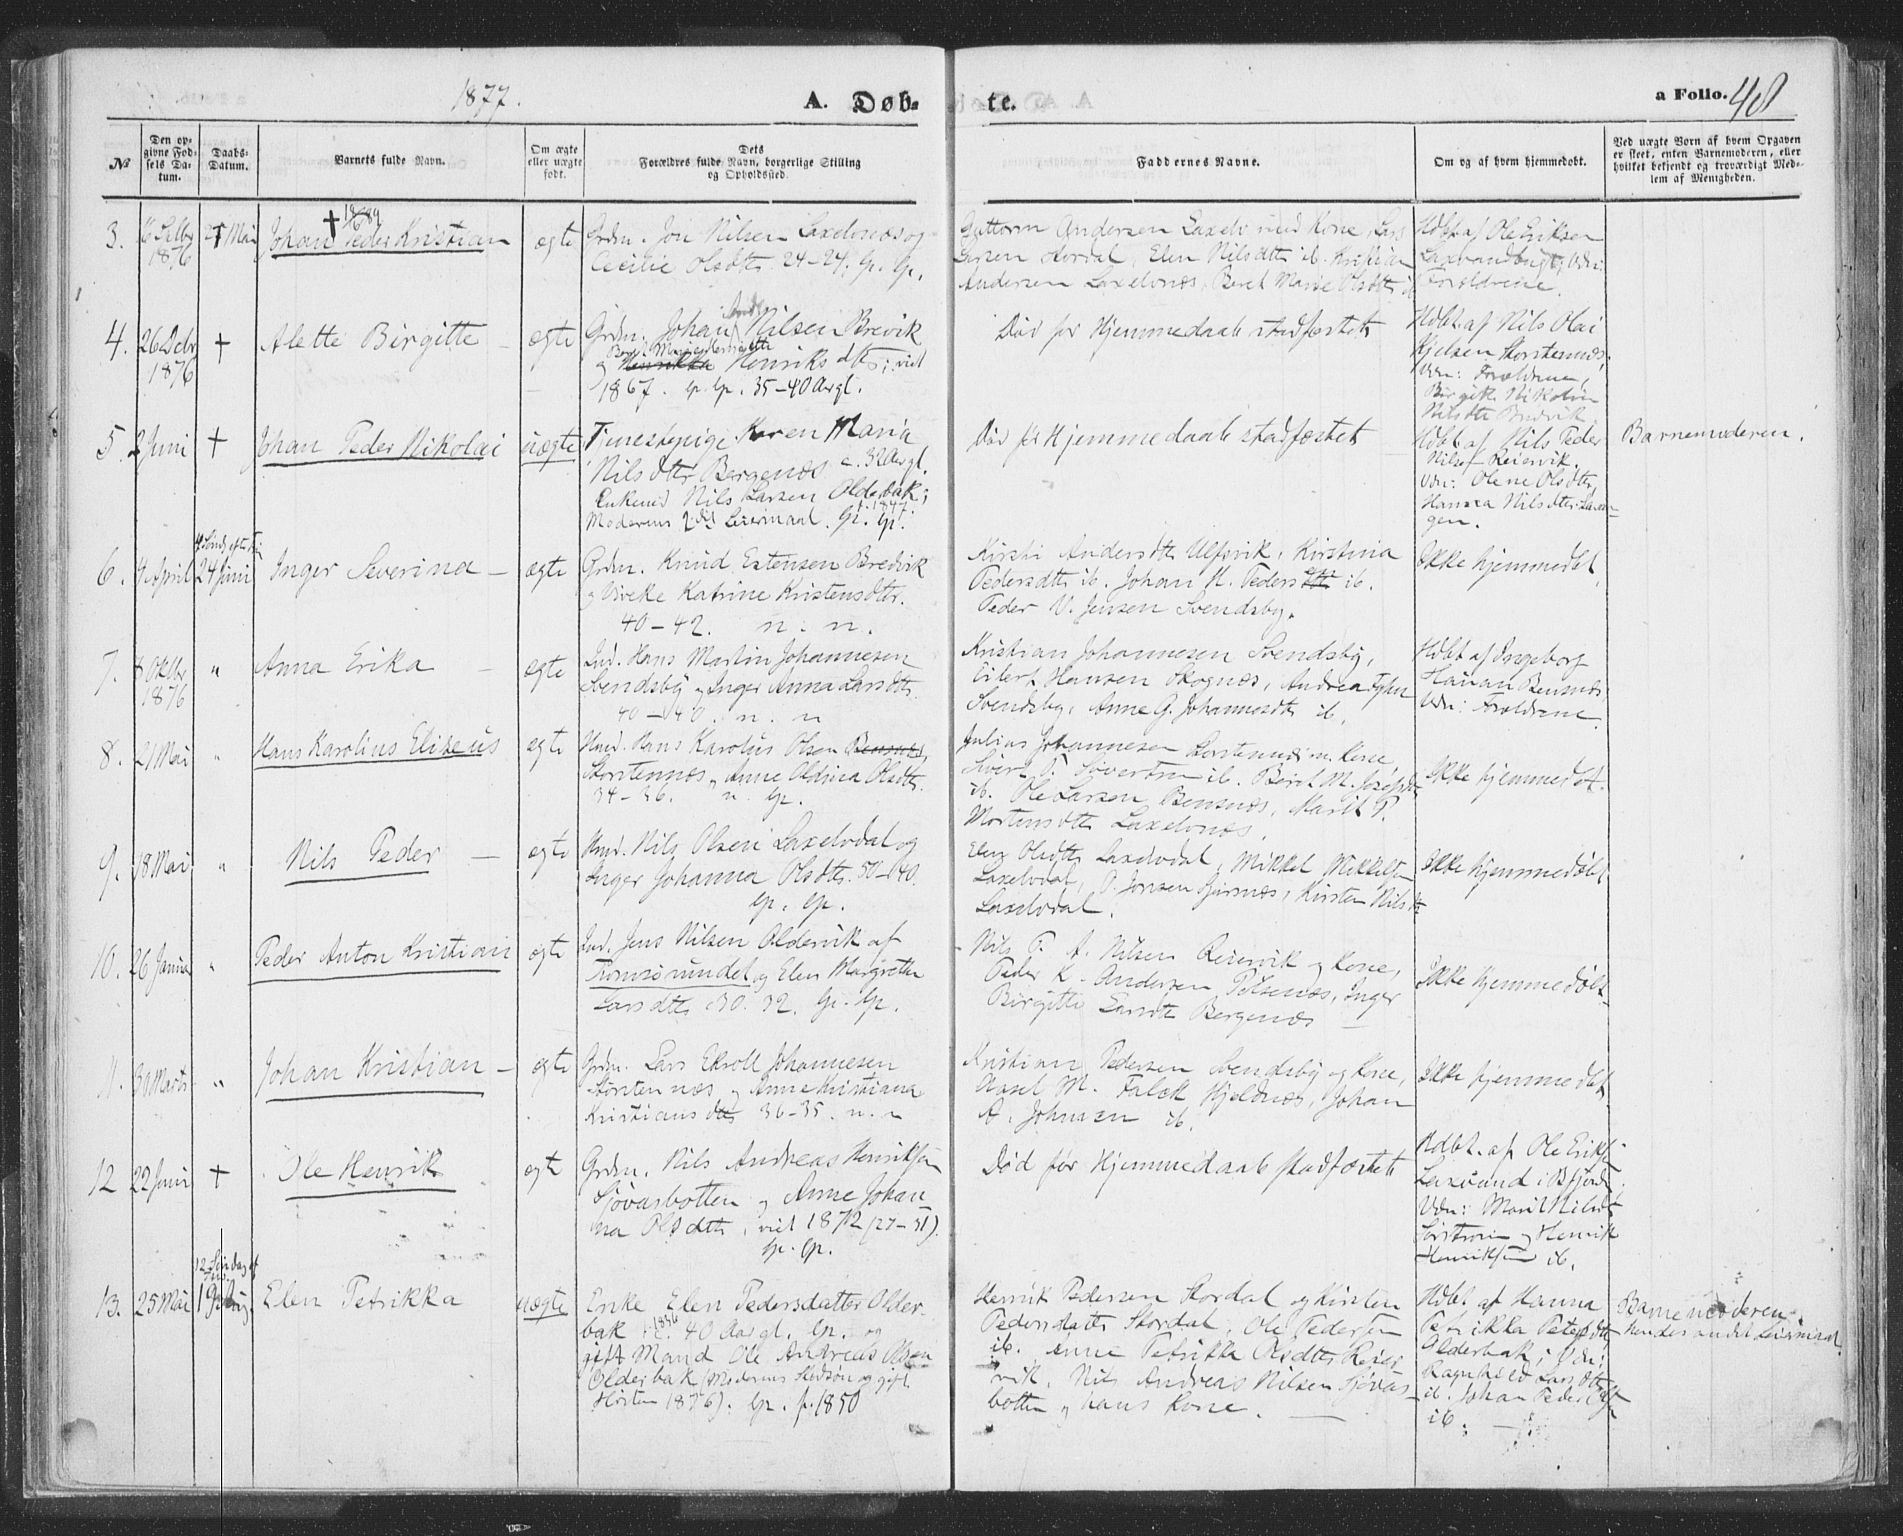 1877.
A. Døb-
te.
a Folio. 48
№
Den op-
givne Fød-
sels Da-
tum.
Daabs-
Datum.
Barnets fulde Navn.
Om ægte
eller uægte
født.
Dets
Forældres fulde Navn, borgerlige Stilling
og Opholdssted.
Faddernes Navne.
Om og af hvem hjemmedøbt.
Ved uægte Børn af hvem Opgaven
er skeet, enten Barnemoderen, eller
hvilket bekjendt og troværdigt Med-
lem af Menigheden.
3.
1876
Mai
Johan Peder Kristian
ægte
Grdm. Jon Nilsen Laxelvnæs og
Cecilie Olsdtr. 24-24. lp. lp.
Guttorm Andersen Laxelv med Kone, Lars
Larsen Stordal, Elen Nilsdtr ib. Kristian
Andersen Laxelvnæs, Beret Marie Olsdtr ib
Hdbt. af Ole Eriksen
Laxvandbugt; Vdn:
Forældrene.
4.
26 Debr
1876
+
Alette Birgitte
ægte
Grdm. Johan Nilsen Brevik
Henriksdtr; viet
1867. lp. lp. 35-40 Aar gl.
Død før Hjemmedaab stadfæstet
Hdbt. af Nils Olai
Kjelsen Storstennæs;
Vdn: Forældrene,
Birgitte Nikolin
Nilsdtr
5.
2 Juni
+
Johan Peder Nikolai
uægte
Tjenestepige Karen Maria
Nilsdtr Bergenæs c. 32 Aar gl.
Enkemd Nils Larsen Olderbak;
Moderens 2det Leiermaal. lp. lp.
Død før Hjemmedaab stadfæstet
Hdbt af Nils Peder
Nilsen Reiervik.
Vdn: Olene Olsdtr,
Hansea Nilsdtr Lavan-
gen.
Barnemoderen.
6.
9 April
24 Juni
Inger Severina
ægte
Grdm. Knud Estensen Bredvik
og Viveke Katrine Kristensdtr.
40-42. n. n.
Kirsti Andersdtr Ulfsvik, Kirstina
Pedersdtr ib. Johan H. Pedersen ib.
Peder V. Jensen Svendsby.
Ikke hjemmedbt
7.
8 Oktbr
1876
"
Anna Erika
ægte
Ind. Hans Martin Johannesen
Svendsby og Inger Anna Larsdtr.
40-40. n. n
Kristian Johannesen Svendsby,
Eilert Hansen Skognæs, Andrea
Svendsby, Anne G. Johannesdtr ib.
Hdbt af Ingeborg
Bensnæs
Vdn: Forældrene
8.
21 Mai
"
Hans Karolius Eliseus
ægte
Hmd. Hans Karolus Olsen Bensnæs,
Storstennæs og Anne Oldina Olsdtr.
34-36. n. lp.
Julius Johannesen Storstennæs m. Kone,
Sivert P. Sivertsen ib. Beret M. Josefsdtr
ib. Ole Larsen Bensnæs, Marit P.
Mortensdtr Laxelvnæs.
Ikke hjemmedbt.
9.
18 Mai
"
Nils Peder
ægte
Hmd. Nils Olsen Laxelvdal og
Inger Johanna Olsdtr. 50-40.
lp. lp.
Elen Olsdtr Laxelvdal, Mikkel Mikkelsen
Laxelvdal, P. Jonsen, Kirsten Nilsdtr
Laxelvdal.
Ikke hjemmedøbt
10.
26 Januar
"
Peder Anton Kristian
ægte
Ind. Jens Nilsen Oldervik af
Tromsøsundet og Elen Margrethe
Larsdtr 30. 32. lp. lp.
Nils P. A. Nilsen Reiervik og Kone,
Peder K. Andersen, Inger
Birgitte Larsdtr Bergenæs
Ikke hjemmedøbt
11.
30 Marts
"
Johan Kristian
ægte
Grdm. Lars Ekroll Johannesen
Storstennæs og Anne Kristiana
Kristiansdtr 36-35. n. n
Kristian Pedersen Svendsby og Kone,
Axel M. Falck Hjeldnæs, Johan
A. Johnsen ib.
Ikke hjemmedbt
12
22 Juni
+
Ole Henrik
ægte
Grdm. Nils Andreas Henriksen
Sjövasbotten og Anne Johan-
na Olsdtr, viet 1872 (27-31).
lp. lp.
Død før Hjemmedaab stadfæstet
Hdbt. af Ole Eriksen
Laxvand i Bfjord.
Vdn: Marit Nilsdtr
og Henrik
Henriksen ib.
13.
25 Mai
12 Søndag ef
19 Aug.
Elen Petrikka
uægte
Enke Elen Pedersdatter Older-
bak f. 1836 c. 40 Aar gl. lp. og
gift Mand Ole Andreas Olsen
Olderbak (Moderens Stedsøn og gift
Høsten 1876). lp. f. 1850
Henrik Pedersen Stordal og Kirsten
Pedersdatter Stordal, Ole Pedersen
ib. Anne Petrikka Olsdtr Reier-
vik. Nils Andreas Nilsen Sjövas-
botten og hans Kone.
Hdbt. af Hanna
Petrikka Petersdtr
Olderbak; Vdn:
Ragnhild Larsdtr
ib. Johan Peder
ib.
Barnemoderen.
hendes andet Leiermaal